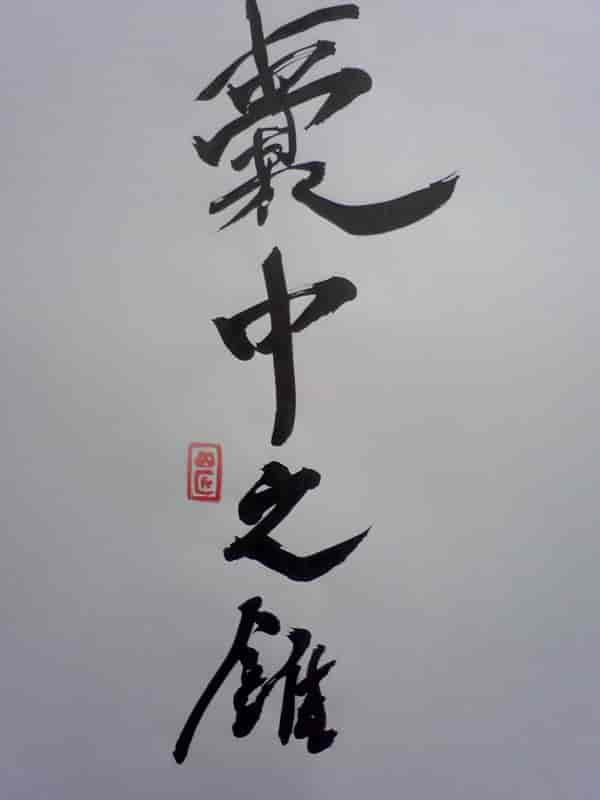 囊中之錐